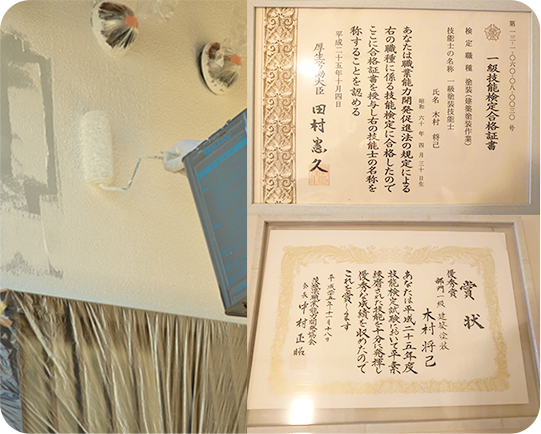 第一三-一-〇六〇-〇八-〇〇三〇号
一級技能検定合格証書
検定職種 塗装(建築塗装作業)
技能士の名称 一級塗装技能士
氏名 木村 将己
昭和 六十年 四月 三十日生
あなたは職業能力開発促進法の規定による
右の職種に係る技能検定に合格したので
ここに合格証書を授与し右の技能士の名称を
称することを認める
平成二十五年十月四日
厚生労働大臣 田村憲久
賞状
優秀賞
部門一級 建築塗装
木村将己
あなたは平成二十五年度
技能検定試験において平素
練磨された技能を十分に発揮し
優秀な成績を収めたので
これを賞します
平成二十五年十一月十八日
会長 中村正昭